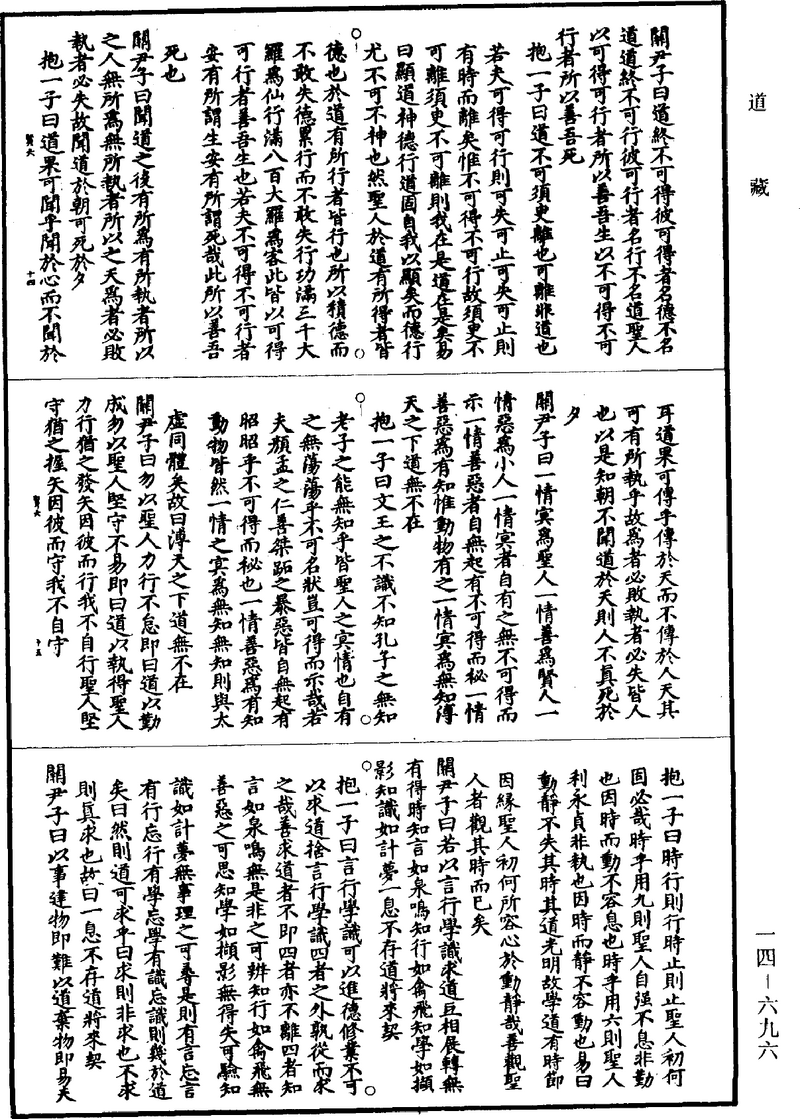 道藏
關尹子曰道終不可得彼可得者名德不名
道道終不可行彼可行者名行不名道聖人
以可得可行者所以善吾生以不可得不可
行者所以善吾死
抱一子曰道不可須更離也可離非道也
若夫可得可行則可失可止可失可止則
有時而離矣惟不可得不可行故須更不
可離須更不可離則我在是道在是矣易
曰顯道神德行道固自我以顯矣而德行
尤不可不神也然聖人於道有所得者皆
德也於道有所行者皆行也所以積德而
不敢失德累行而不敢失行功滿三千大
羅爲仙行滿八百大羅爲客此皆以可得
可行者善吾生也若夫不可得不可行者
安有所謂生安有所謂死哉此所以善吾
死也
關尹子曰聞道之後有所爲有所執者所以
之人無所爲無所執者所以之天爲者必敗
執者必失故聞道於朝可死於夕
抱一子曰道果可聞乎聞於心而不聞於
賢六 十四
耳道果可傳乎傳於天而不傳於人天其
可有所執乎故爲者必敗執者必失皆人
也以是知朝不聞道於天則人不真死於
夕
關尹子曰一情冥爲聖人一情善爲賢人一
情惡爲小人一情冥者自有之無不可得而
示一情善惡者自無起有不可得而秘一情
善惡爲有知惟動物有之一情冥爲無知溥
天之下道無不在
抱一子曰文王之不識不知孔子之無知
老子之能無知乎皆聖人之冥情也自有
之無蕩蕩乎不可名狀豈可得而示哉若
夫顏孟之仁善桀跖之暴惡皆自無起有
昭昭乎不可得而秘也一情善惡爲有知
動物皆然一情之冥爲無知無知則與太
虛同體矣故曰溥天之下道無不在
關尹子曰勿以聖人力行不怠即曰道以勤
成勿以聖人堅守不易即曰道以執得聖人
力行猶之發矢因彼而行我不自行聖人堅
守猶之握矢因彼而守我不自守
賢六 十五
抱一子曰時行則行時止則止聖人初何
固必哉時乎用九則聖人自强不息非勤
也因時而動不容息也時乎用六則聖人
利永貞非執也因時而靜不容動也易曰
動靜不失其時其道光明故學道有時節
因緣聖人初何所容心於動靜哉善觀聖
人者觀其時而已矣
關尹子曰若以言行學識求道互相展轉無
有得時知言如泉鳴知行如禽飛知學如擷
影知識如計夢一息不存道將來契
抱一子曰言行學識可以進德修業不可
以求道捨言行學識四者之外孰從而求
之哉善求道者不即四者亦不離四者知
言如泉鳴無是非之可辨知行如禽飛無
善惡之可思知學如擷影無得失可驗知
識如計夢無事理之可尋是則有言忘言
有行忘行有學忘學有識忘識則幾於道
矣曰然則道可求乎曰求則非求也不求
則真求也故曰一息不存道將來契
關尹子曰以事建物即難以道棄物即易天
一四－六九六